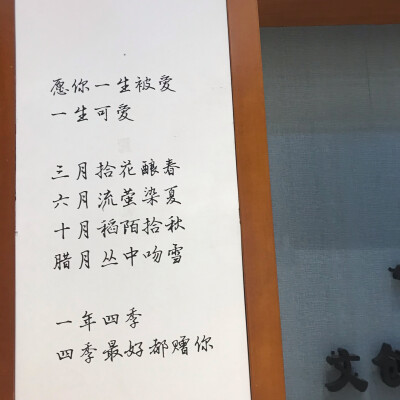 愿你一生被愛
一生可愛
三月拾花酿春
六月流萤染夏
十月稻陌拾秋
腊月丛中吻雪
一年四季
四季最好都赠你